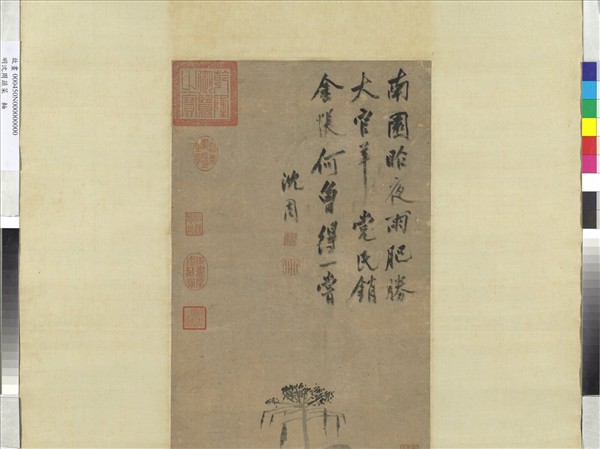 南園昨夜雨肥勝
大官羊党氏銷
金帳何曾得一嘗
沈周
故畫000450N000000000
明沈周蔬菜 軸